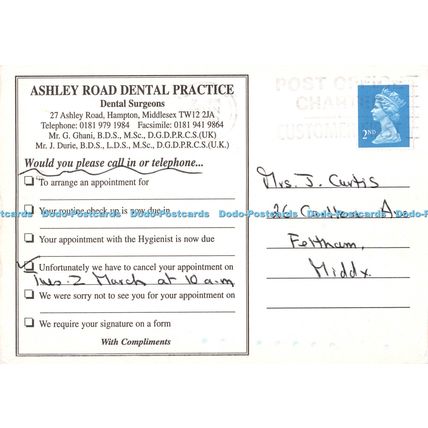 ASHLEY ROAD DENTAL PRACTICE
Dental Surgeons
27 Ashley Road, Hampton, Middlesex TW12 2JA
Telephone: 0181 979 1984 Facsimile: 0181 941 9864
Mr. G. Ghani, B.D.S., M.Sc., D.G.D.P.R.C.S.(UK)
Mr. J. Durie, B.D.S., L.D.S., M.Sc., D.G.D.P.R.C.S.(U.K.)
Would you please call in or telephone...
To arrange an appointment for
Your routine check-up is now due in
Your appointment with the Hygienist is now due
Unfortunately we have to cancel your appointment on
Tues. 2 March at 10 a.m
We were sorry not to see you for your appointment on
We require your signature on a form
With Compliments
POST OFFICE
CUSTOMER
2ND
Mrs. J. Curtis
26
Feltham,
Middx.
Dodo-Postcards Dodo-Postcards Dodo-Postcards Dodo-Postcards Dodo-Postcards